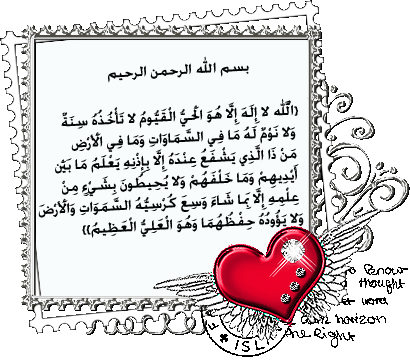 بسم الله الرحمن الرحيم
(اللَّه لا إِلَهَ إِلَّا هُوَ الْحَيُّ الْقَيُّومُ لا تَأْخُذُهُ سِنَةٌ
وَلا نَوْمٌ لَهُ مَا فِي السَّمَاوَاتِ وَمَا فِي الْأَرْضِ
مَنْ ذَا الَّذِي يَشْفَعُ عِنْدَهُ إِلَّا بِإِذْنِهِ يَعْلَمُ مَا بَيْنَ
أَيْدِيهِمْ وَمَا خَلْفَهُمْ وَلا يُحِيطُونَ بِشَيْءٍ مِنْ
عِلْمِهِ إِلَّا بِمَا شَاءَ وَسِعَ كُرْسِيُّهُ السَّمَوَاتِ وَالْأَرْضَ
وَلا يَؤُودُهُ حِفْظُهُمَا وَهُوَ الْعَلِيُّ الْعَظِيمُ))
thought
horizon
the Right
ISL